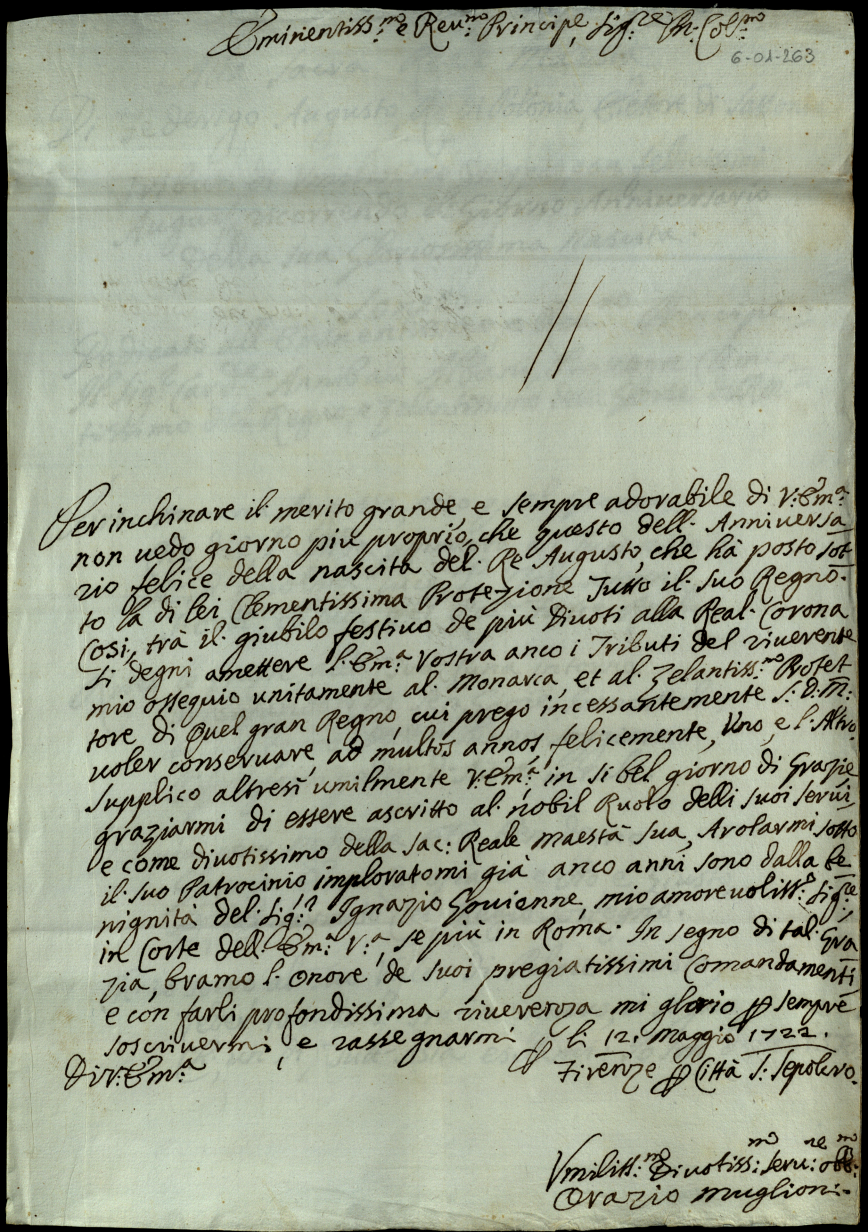 Eminentiss:mo e Reu:mo Principe, Sig:re Pn: Col:mo
6-01-263
Per inchinare il merito grande, e sempre adorabile di V: Em:a
non uedo giorno piu proprio, che questo dell' Anniuersa
rio felice della nascita del Re Augusto, che hà posto sot
to la di lei Clementissima Protezione Tutto il suo Regno.
Così, trà il giubilo festiuo de più Diuoti alla Real Corona
si degni amettere l' Em:a Vostra anco i Tributi del riuerente
mio ossequio unitamente al Monarca, et al Zelantiss:mo Protet
tore di Quel gran Regno, cui prego incessantemente S: D: M:
uoler conseruare, ad multos annos, felicemente, Uno, e l' Altro.
Supplico altresì umilmente V: Em:a in si bel giorno di Grazie
graziarmi di essere ascritto al nobil Ruolo delli suoi serui
e come diuotissimo della Sac: Reale Maestà sua, Arolarmi sotto
il suo Patrocinio imploratomi già anco anni sono dalla be
nignità del Sig:r Ignazio mio amoreuoliss:o Sig:re
in Corte dell' Em:a V:a, se più in Roma. In segno di tal Gra
zia, bramo l' onore de suoi pregiatissimi Comandamenti
e con farli profondissima riuerenza mi glorio p sempre
soscriuermi, e rassegnarmi
Di V: Em:a
li 12. Maggio 1722.
Firenze p Città S: Sepolcro.
Vmiliss:mo Diuotiss:mo Seru:re obb:mo
Orazio Muglioni